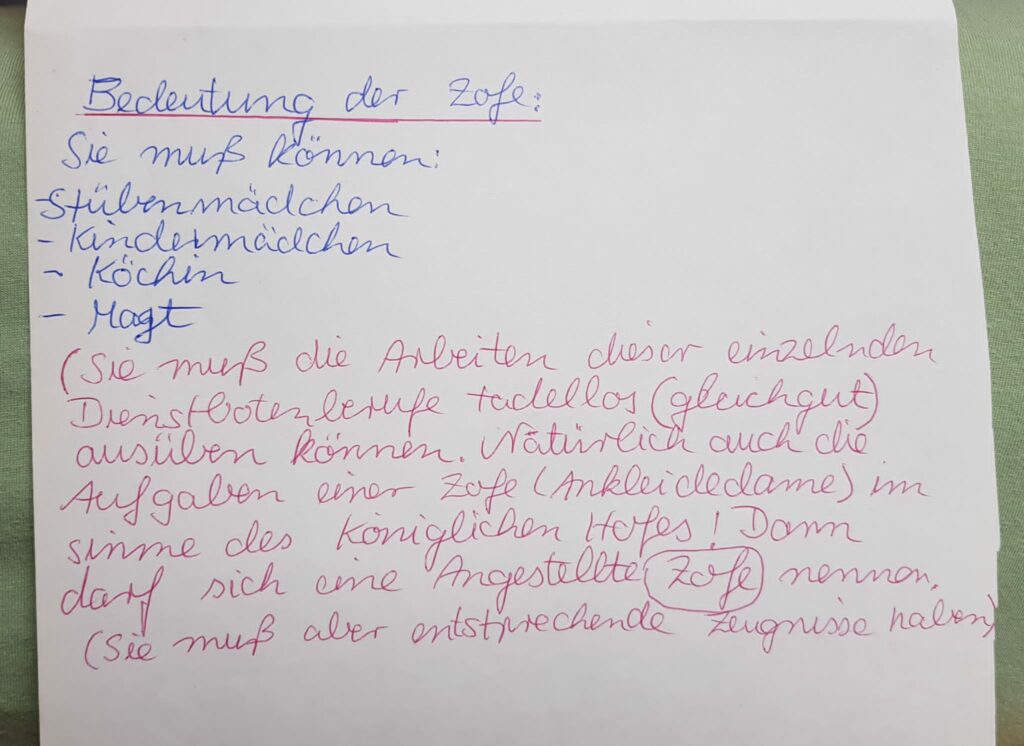 Bedeutung der Zofe:
Sie muß können:
-Stübenmädchen
- Kindermädchen
- Köchin
- Magt
(Sie muß die Arbeiten dieser einzelnden
Dienstbotenberufe tadellos (gleichgut)
ausüben können. Natürlich auch die
Aufgaben einer Zofe (Ankleidedame) im
sinme des königlichen Hofes! Dann
darf sich eine Angestellte Zofe nennen.
(Sie muß aber entstprechende Zeugnisse haben)